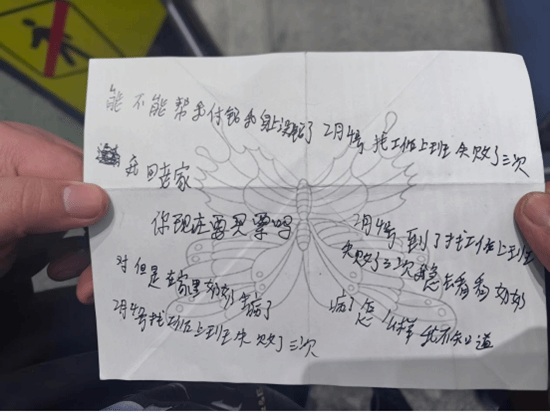 能不能帮我付钱我身上没钱了 2月4号 找工作上班失败了三次
我回老家
你现在要买票吗
2月4号到了找工作上班
失败了三次 想去看看奶奶
对但是在家里奶奶生病了
病了怎么样我不知道
2月4号找工作上班失败了三次